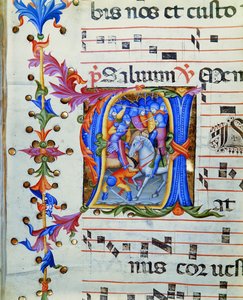 bis nos et custo
ps Saluum
at
nus corusc